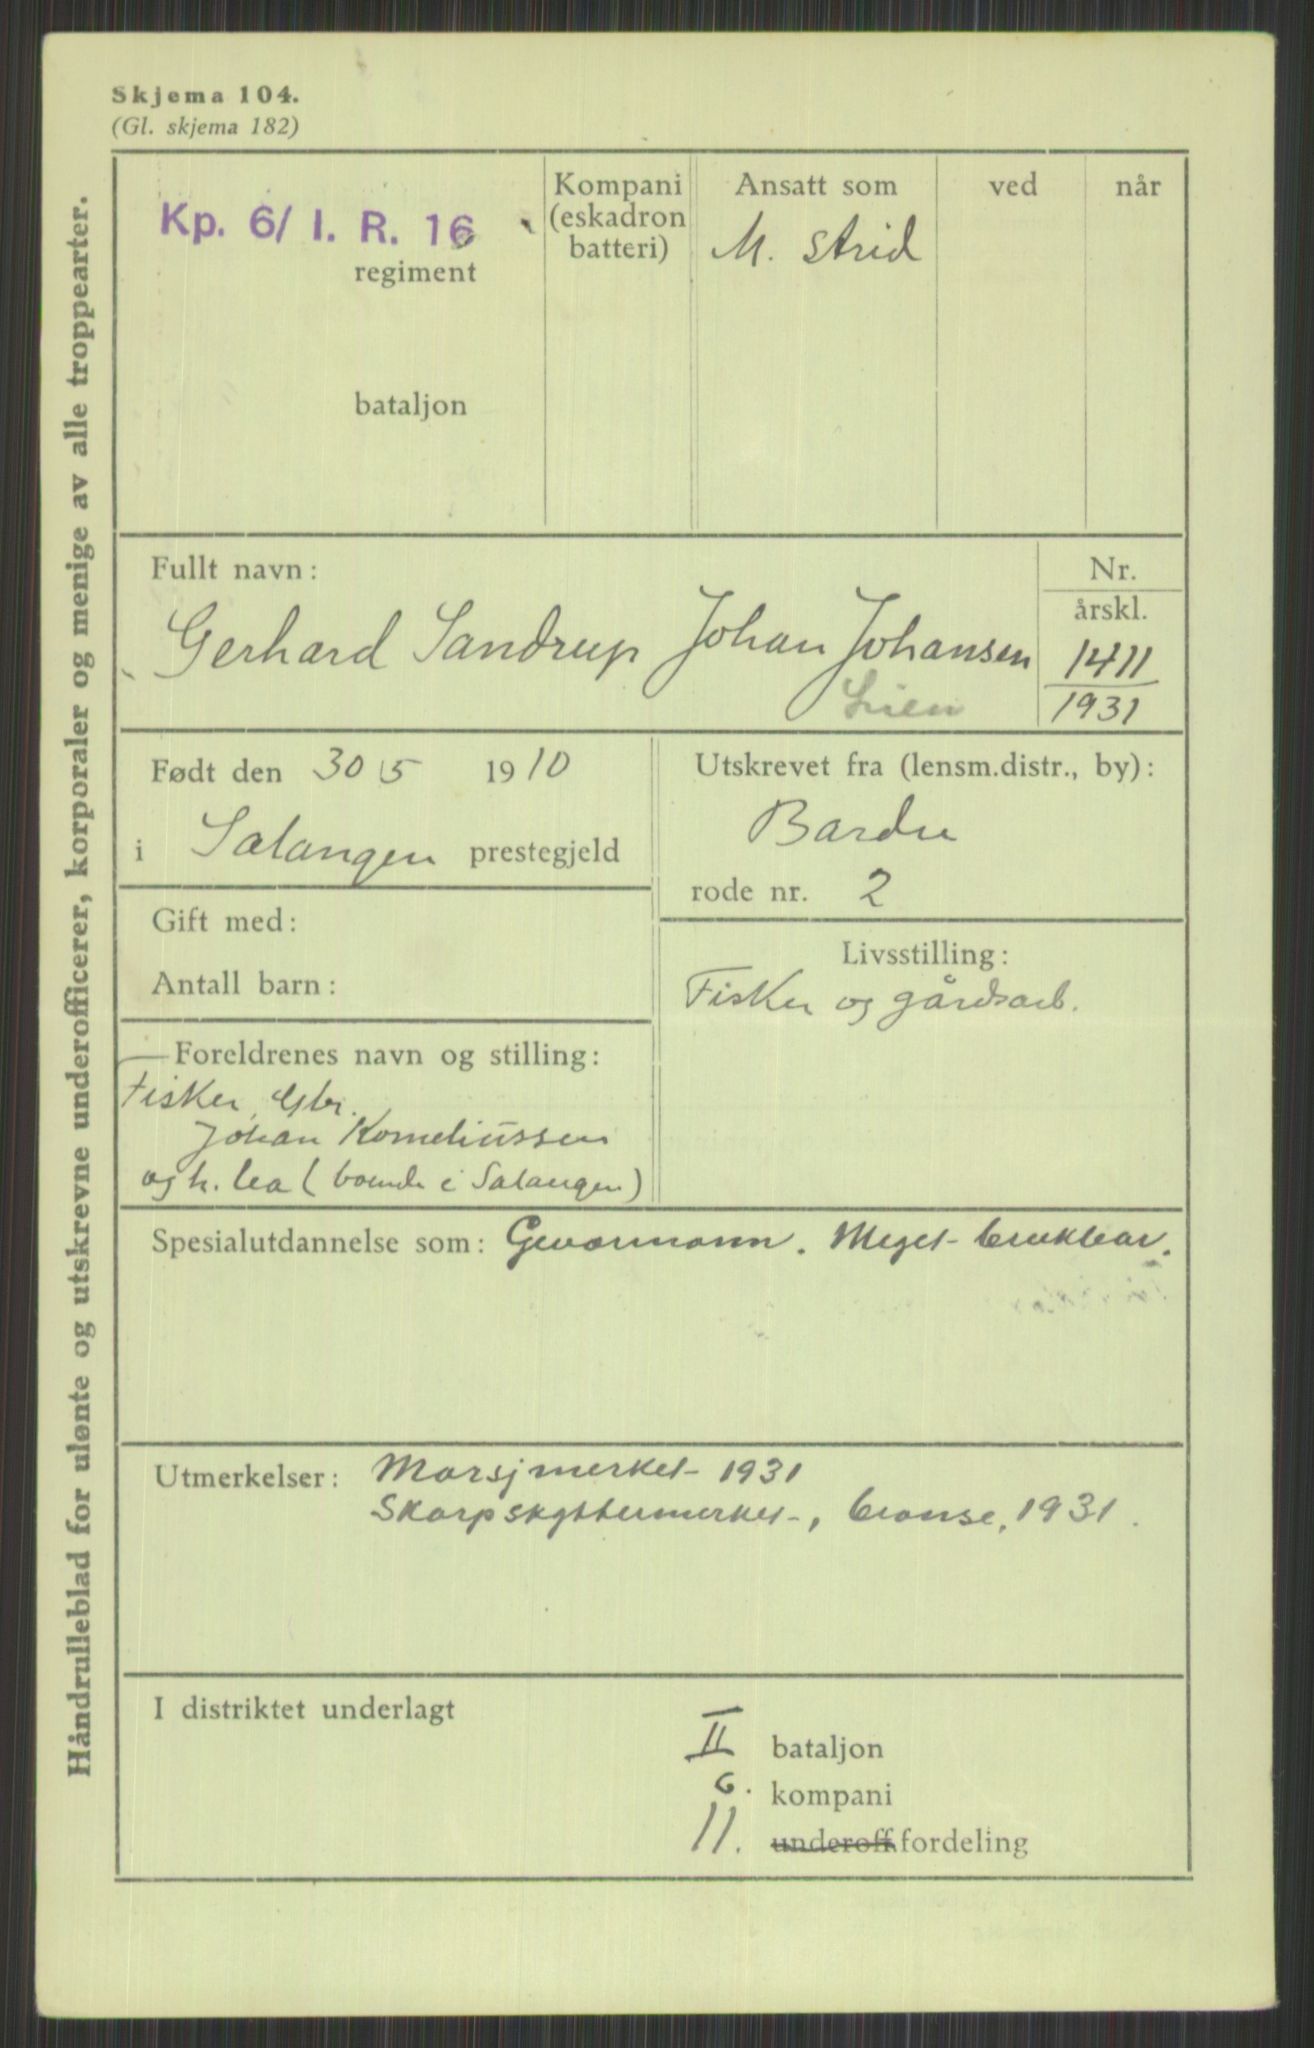 Skjema 104.
(Gl. skjema 182)
Håndrulleblad for ulønte og utskrevne underofficerer, korporaler og menige av alle troppearter.
Kp. 6/ I. R. 16
regiment
bataljon
Kompani
(eskadron
batteri)
Ansatt som
M. strid
ved
når
Fullt navn:
Gerhard Sandrup Johan Johansen
Lien
Nr.
årskl.
1411
1931
Født den 30 5 1910
i Salangen prestegjeld
Utskrevet fra (lensm.distr., by):
Bardu
rode nr. 2
Gift med:
Antall barn:
Livsstilling:
Fisker og gårdsarb.
Foreldrenes navn og stilling:
Fisker, Gbr.
Johan Korneliussen
og h. Lea (boende i Salangen)
Spesialutdannelse som: Geværmann. Meget brukbar.
Utmerkelser: Marsjmerket 1931
Skarpskyttermerket, bronse, 1931.
I distriktet underlagt
II bataljon
6. kompani
11. underoff.fordeling